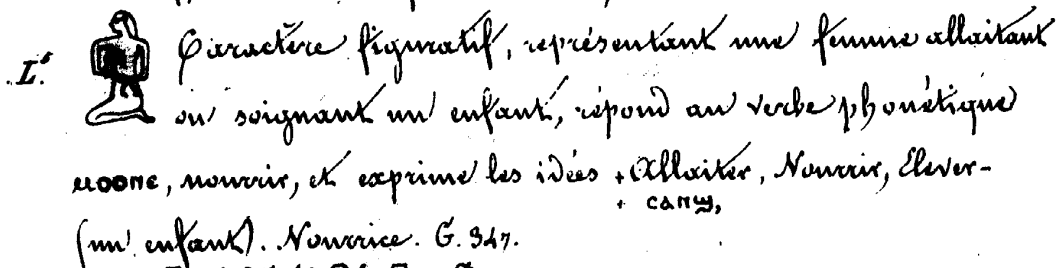 L. Caractère figuratif, représentant une femme allaitant
ou soignant un enfant, répond au verbe phonétique
ⲙⲟⲟⲛⲉ, nourrir, et exprime les idées + Allaiter, Nourrir, Elever-
+ ⲥⲁⲛϣ,
(un enfant). Nourrice. G. 347.